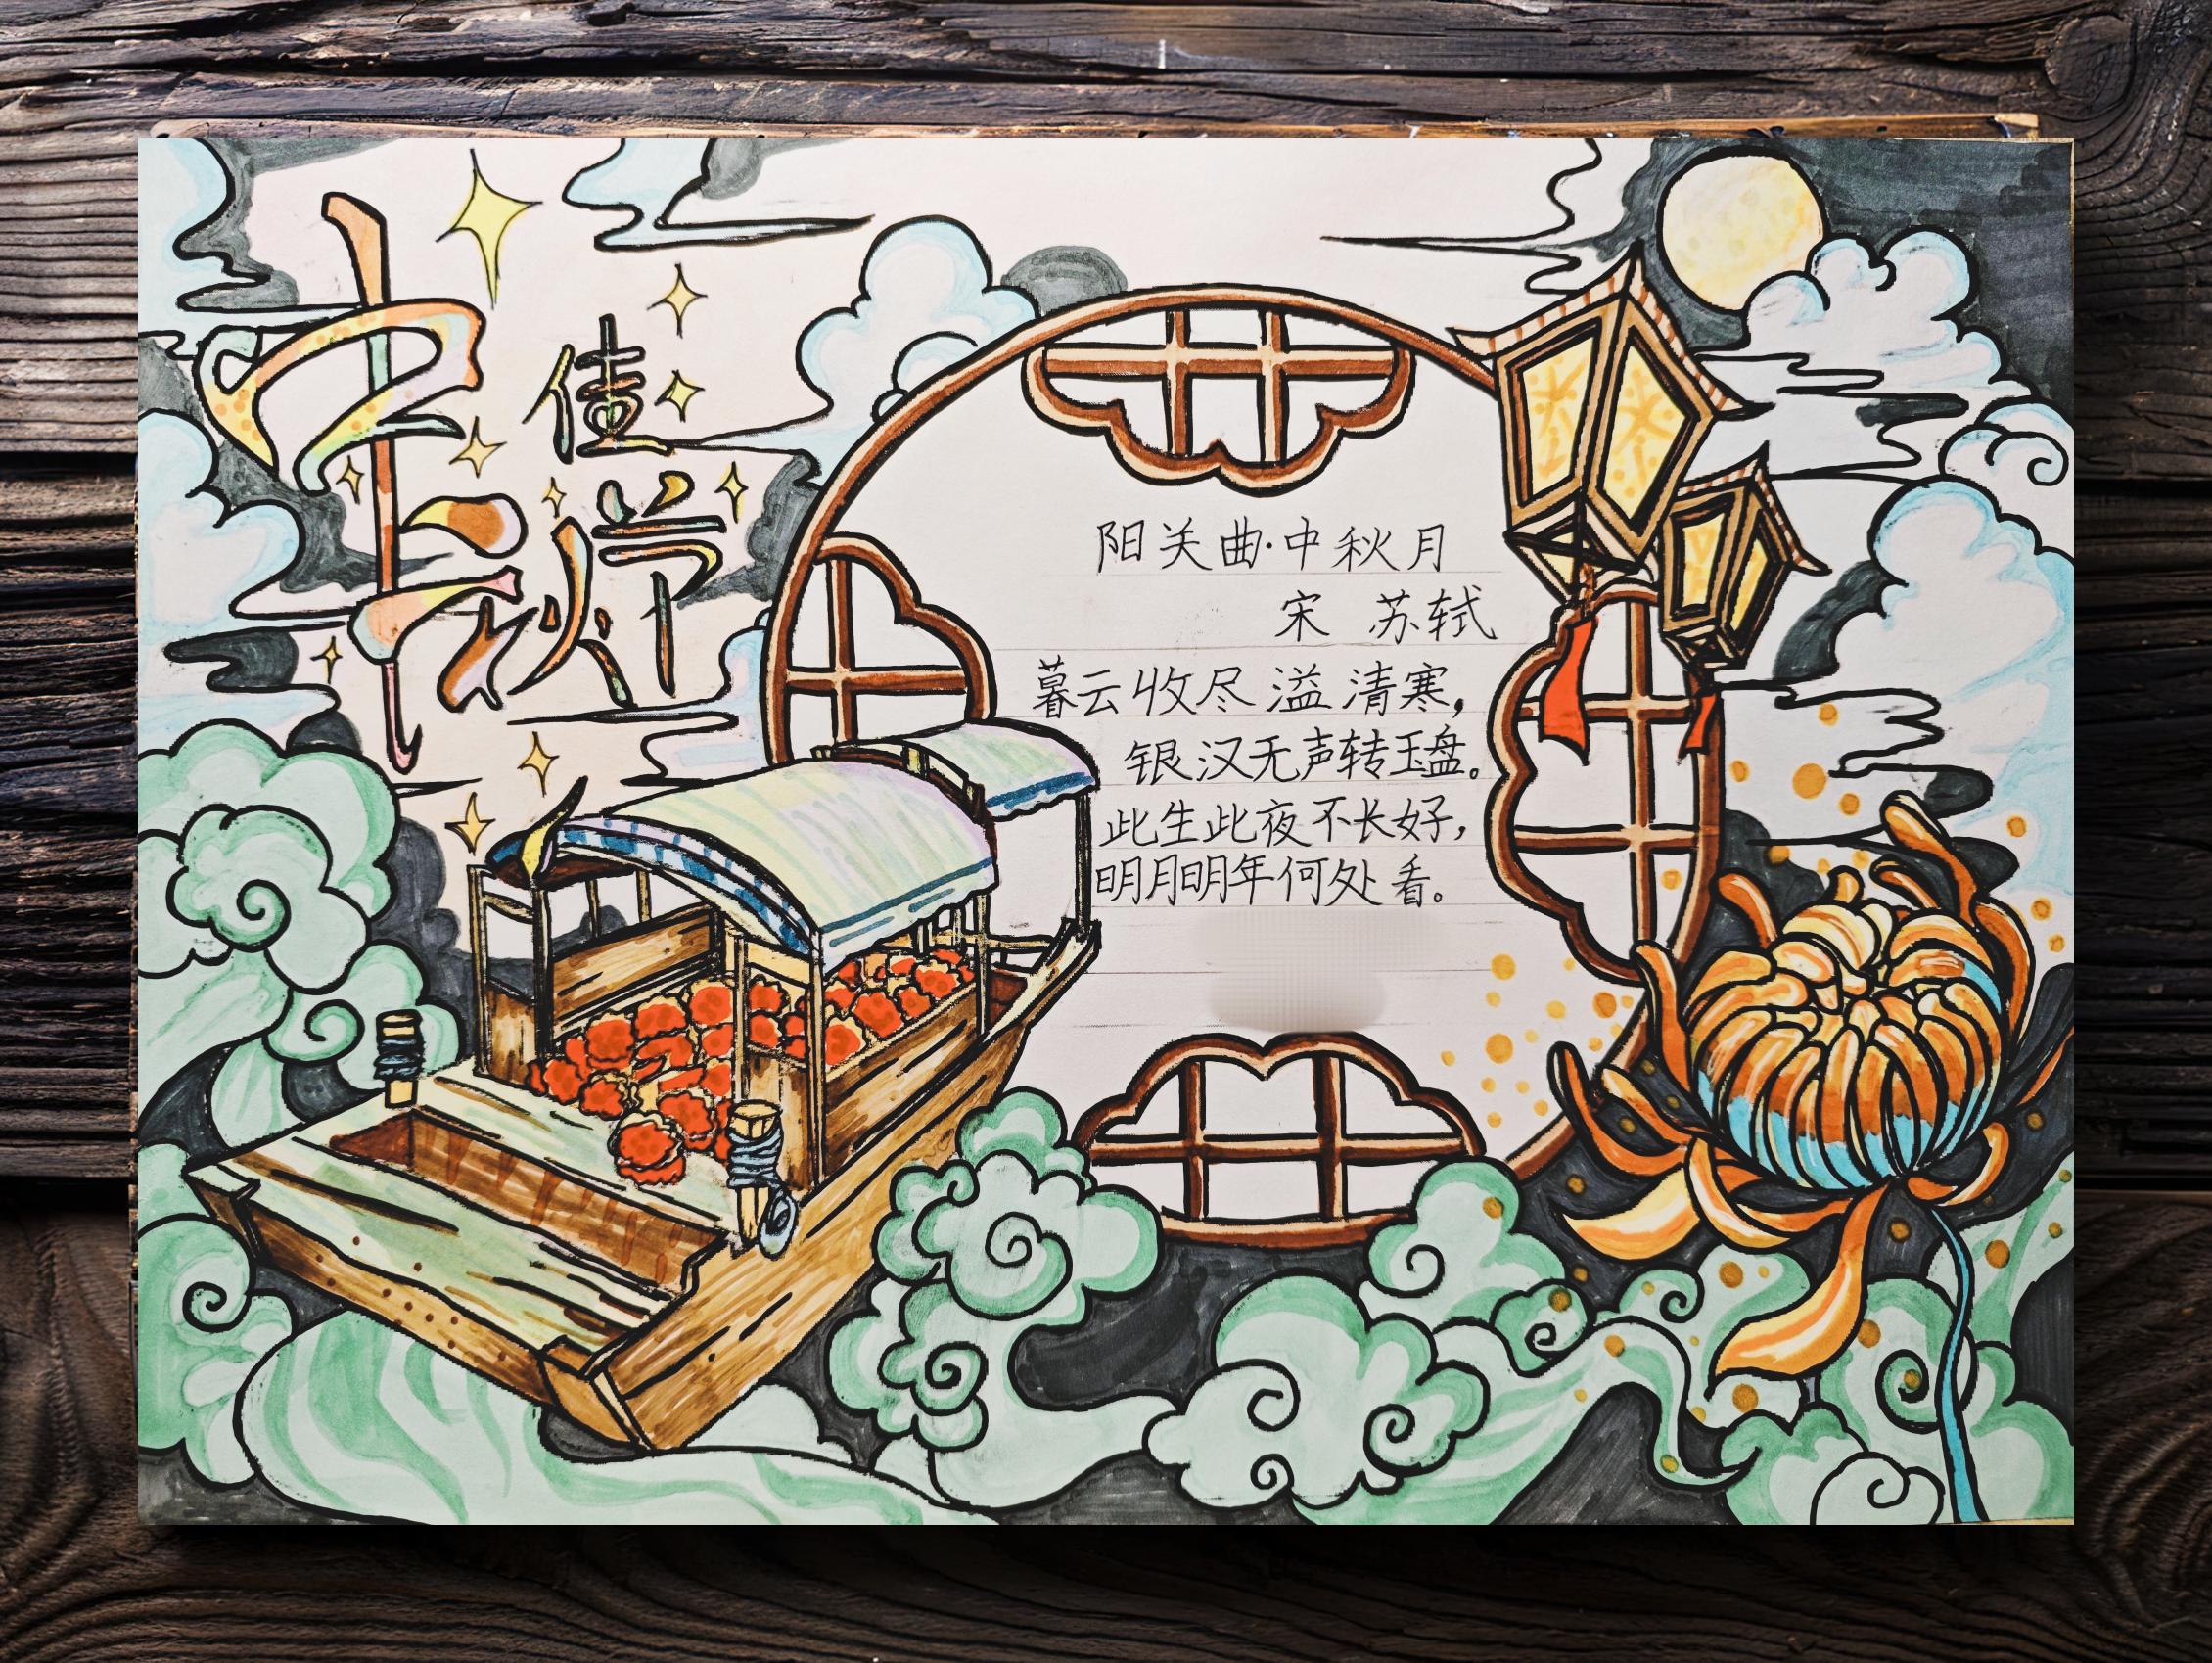 中秋
佳节
阳关曲·中秋月
宋 苏轼
暮云收尽溢清寒，
银汉无声转玉盘。
此生此夜不长好，
明月明年何处看。